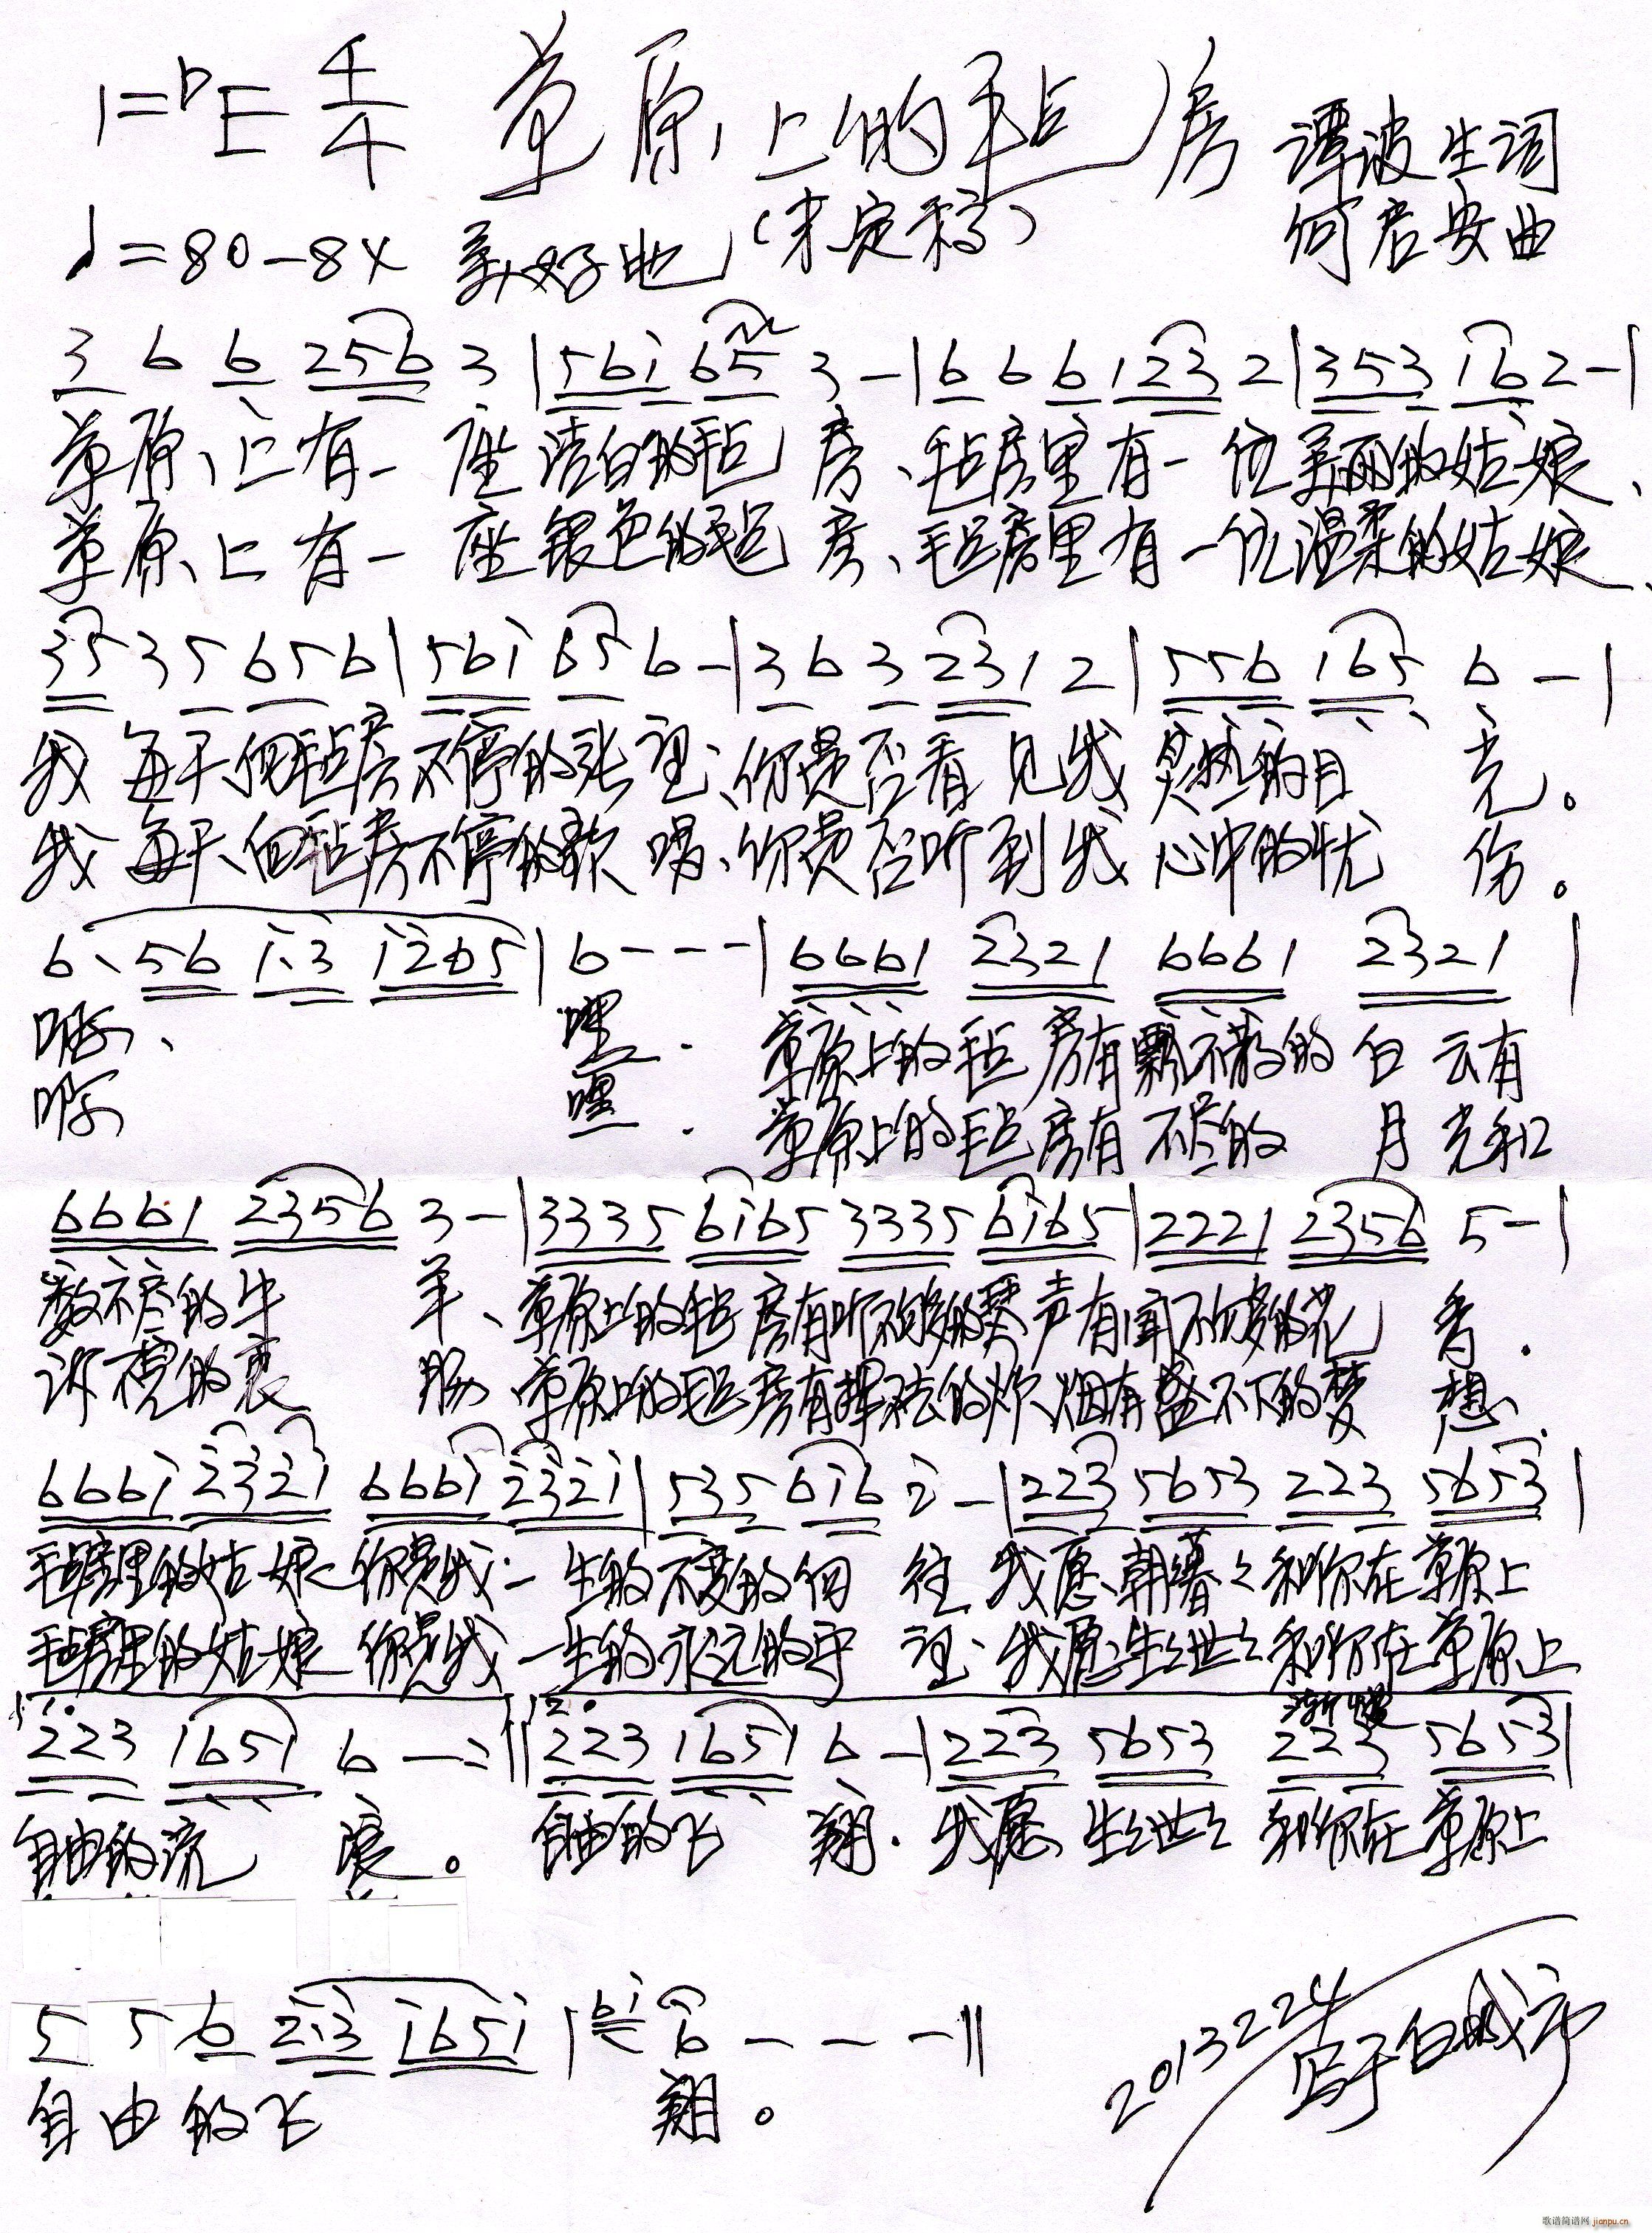 1=bE 4/4 草原上的毡房 谭波生词
♩=80-84 美好地 (未定稿) 何君安曲
3 6 6 256 3 | 561 65 3 - | 6 6 6 123 2 | 353 16 2 - |
草原上有一座洁白的毡房、毡房里有一位美丽的姑娘、
草原上有一座银色的毡房、毡房里有一位温柔的姑娘、
35 3 5 6 5 6 | 561 65 6 - | 3 6 3 231 2 | 556 165 6 - |
我每天向毡房不停的张望、你是否看见我炙热的目光。
我每天向毡房不停的歌唱、你是否听到我心中的忧伤。
6、56 1.3 1265 | 6 - - - | 6661 2321 6661 2321 |
呀、嘿. 草原上的毡房有飘不散的白云有
呀 嘿. 草原上的毡房有不尽的月光和
6661 2356 3 - | 3335 6165 3335 6165 | 2221 2356 5 - |
数不尽的牛羊、草原上的毡房有听不够的琴声有闻不够的花香.
诉不完的衷肠、草原上的毡房有挥不去的炊烟有盛不下的梦想.
6661 2321 6661 2321 | 535 616 2 - | 223 5653 223 5653 |
毡房里的姑娘你是我一生的不变的向往 我愿朝朝暮暮和你在草原上
毡房里的姑娘你是我一生的永远的守望 我愿生生世世和你在草原上
1. 2. 渐慢
223 1651 6 - :|| 223 1651 6 - | 223 5653 223 5653 |
自由的流浪。自由的飞翔. 我愿生生世世和你在草原上
5 5 6 2.3 1651 | 61 6 - - - ||
自由的飞翔。
2013224
写于白城市
歌谱简谱网 jianpu.cn